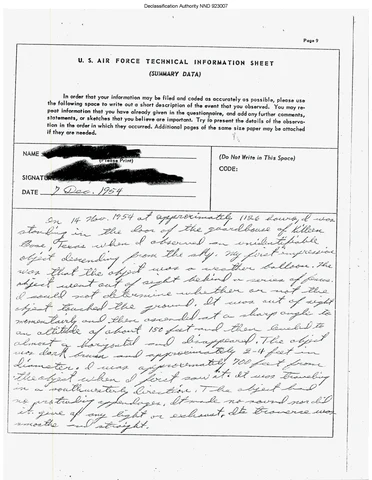 Declassification Authority NND 923007
Page 9
U. S. AIR FORCE TECHNICAL INFORMATION SHEET
(SUMMARY DATA)
In order that your information may be filed and coded as accurately as possible, please use
the following space to write out a short description of the event that you observed. You may re-
peat information that you have already given in the questionnaire, and add any further comments,
statements, or sketches that you believe are important. Try to present the details of the observa-
tion in the order in which they occurred. Additional pages of the same size paper may be attached
if they are needed.
NAME
(Please Print)
(Do Not Write in This Space)
CODE:
SIGNATURE
DATE 7 Dec. 1954
On 14 Nov. 1954 at approximately 1126 hours, I was
standing in the door of the guardhouse of Killeen
Base, Texas when I observed an unidentifiable
object descending from the sky. My first impression
was that the object was a weather balloon. The
object went out of sight behind a series of
I could not determine whether or not the
object touched the ground. It was out of sight
momentarily and then ascended at a sharp angle to
an altitude of about 150 feet and then leveled to
almost a horizontal and disappeared. The object
was dark brown and approximately 2-4 feet in
diameter. I was approximately feet from
the object when I first saw it. It was traveling
in a southwesterly direction. The object had
no protruding appendages. It made no sound nor did
it give off any light or exhaust. Its traverse was
smooth and straight.